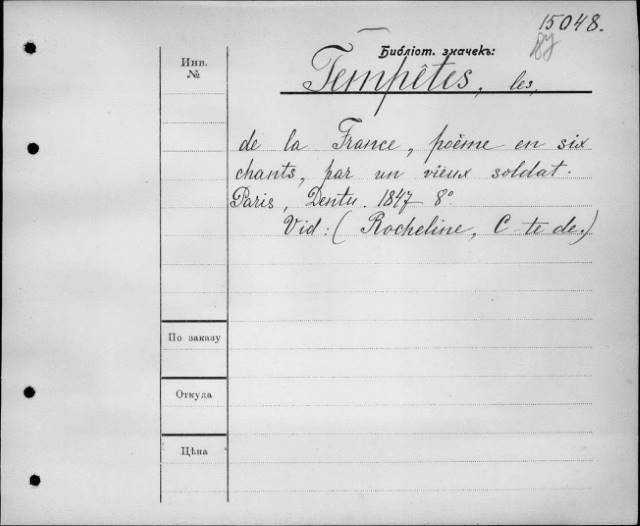 15048.
87
Библіот. значекъ:
Инв.
№
Tempêtes, les,
de la France, poëme en six
chants, par un vieux soldat.
Paris, Dentu. 1847 8°
Vid: ( Rocheline, C-te de.)
По заказу
Откуда
Цѣна